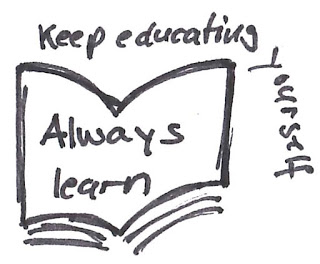 Keep educating
Yourself
Always
learn